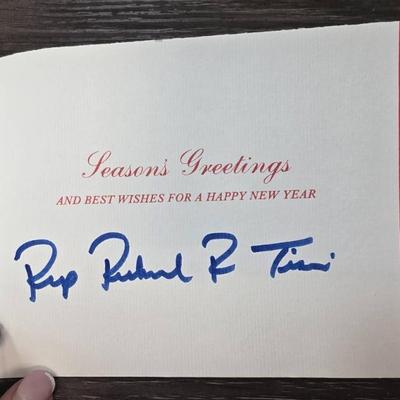 Season's Greetings
AND BEST WISHES FOR A HAPPY NEW YEAR
Rep Richard R